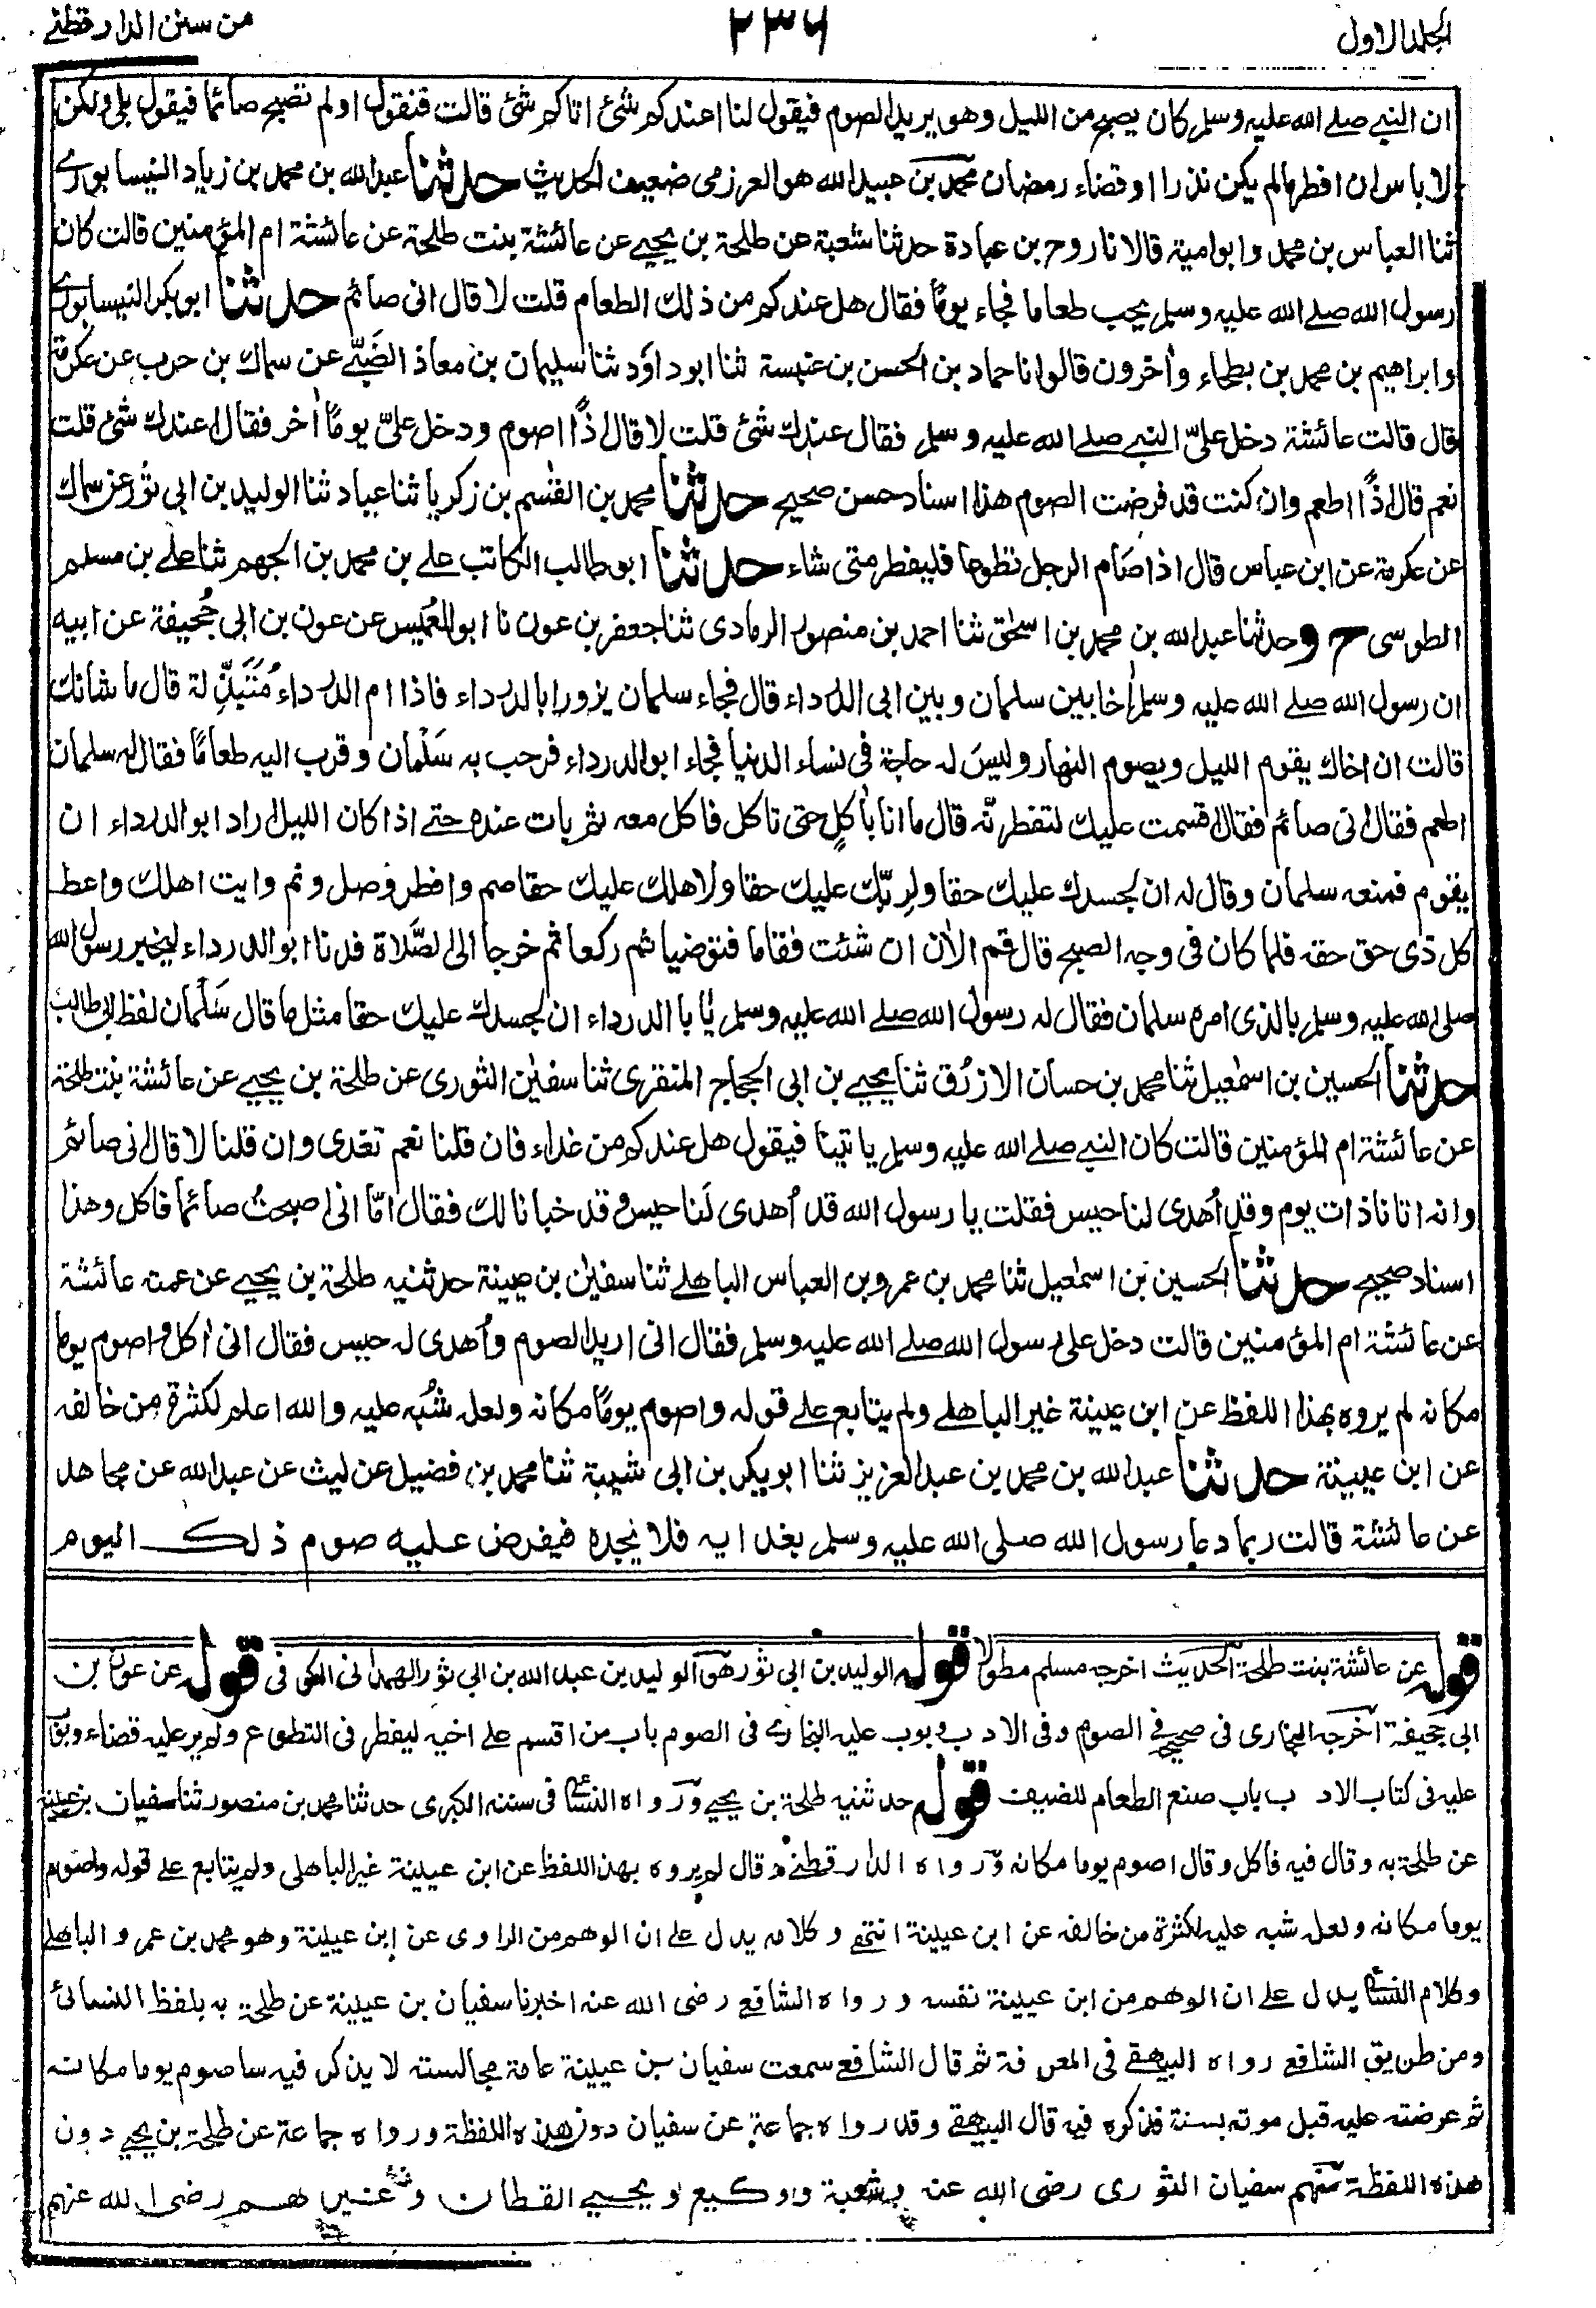 الجلد الاول
٢٣٦
من سنن الدارقطنے
ان النبے صلے الله عليه وسلم كان يصبح من الليل وهو يريد الصوم فيقول لنا اعندكم شئ اتاكم شئ قالت فنقول اولم تصبح صائما فيقول بلے ولكن
لا باس ان افطر مالم يكن نذرا او قضاء رمضان محمد بن عبيد الله هو العرزمى ضعيف الحديث حدثنا عبد الله بن محمد بن زياد النيسابورے
ثنا العباس بن محمد وابو امية قالا نا روح بن عبادة حدثنا شعبة عن طلحة بن يحيے عن عائشة بنت طلحة عن عائشة ام المؤمنين قالت كان
رسول الله صلے الله عليه وسلم يحب طعاما فجاء يومًا فقال هل عندكم من ذلك الطعام قلت لا قال انى صائم حدثنا ابو بكر النيسابورے
وابراهيم بن محمد بن بطحاء وأخرون قالوا نا حماد بن الحسن بن عنبسة ثنا ابو داؤد ثنا سليمان بن معاذ الضَبّے عن سماك بن حرب عن عكرمة
قال قالت عائشة دخل علىّ النبے صلے الله عليه وسلم فقال عندك شئ قلت لا قال اذًا اصوم ودخل علىّ يومًا أخر فقال اعندك شئ قلت
نعم قال اذًا اطعم وان كنت قد فرضت الصوم هذا اسناد حسن صحيح حدثنا محمد بن القٰسم بن زكريا ثنا عباد ثنا الوليد بن ابى ثور عن سماك
عن عكرمة عن ابن عباس قال اذا صَام الرجل تطوعا فليفطر متى شاء حدثنا ابو طالب الكاتب علے بن محمد بن الجهم ثنا علے بن مسلم
الطوسى ح وحدثنا عبد الله بن محمد بن اسحٰق ثنا احمد بن منصور الرمادى ثنا جعفر بن عون نا ابو العُمَيس عن عون بن ابى جُحيفة عن ابيه
ان رسول الله صلے الله عليه وسلم أخا بين سلمان وبين ابى الدرداء قال فجاء سلمان يزور ابا الدرداء فاذا ام الدرداء مُتَبَذِّلة قال ما شانك
قالت ان اخاك يقوم الليل ويصوم النهار وليسَ له حاجة فى نساء الدنيا فجاء ابو الدرداء فرحب به سَلْمان وقرب اليه طعامًا فقال له سلمان
اطعم فقال انى صائم فقال اقسمت عليك لتفطرنّه قال ما انا بأكلٍ حتى تاكل فاكل معه ثم بات عنده حتے اذا كان الليل اراد ابو الدرداء ان
يقوم فمنعه سلمان وقال له ان لجسدك عليك حقا ولِربّك عليك حقا ولاهلك عليك حقا صم وافطر وصل ونم وايت اهلك واعط
كل ذى حق حقه فلما كان فى وجه الصبح قال قم الأن ان شئت فقاما فتوضيا ثم ركعا ثم خرجا الى الصَّلاة فدنا ابو الدرداء ليخبر رسول الله
صلى الله عليه وسلم بالذى امره سلمان فقال له رسول الله صلے الله عليه وسلم يٰا با الدرداء ان لجسدك عليك حقا مثل ما قال سَلْمان لفظ ابى طالب
حدثنا الحسين بن اسمٰعيل ثنا محمد بن حسان الازرق ثنا يحيے بن ابى الحجاج المنقرى ثنا سفيٰن الثورى عن طلحة بن يحيے عن عائشة بنت طلحة
عن عائشة ام المؤمنين قالت كان النبے صلے الله عليه وسلم ياتينا فيقول هل عندكم من غداء فان قلنا نعم تغدى وان قلنا لا قال انى صائم
وانه اتانا ذات يوم وقد اُهدى لنا حيس فقلت يا رسول الله قد اُهدى لَنا حيس وقد خبانا لك فقال امّا انى اصبحتُ صائما فاكل وهذا
اسناد صحيح حدثنا الحسين بن اسمٰعيل ثنا محمد بن عمرو بن العباس الباهلے ثنا سفيٰن بن عيينة حدثنيه طلحة بن يحيے عن عمته عائشة
عن عائشة ام المؤمنين قالت دخل على رسول الله صلے الله عليه وسلم فقال انى اريد الصوم وأهدى له حيس فقال انى أكل واصوم يوما
مكانه لم يروه بهذا اللفظ عن ابن عيينة غير الباهلے ولم يتابع علے قوله واصوم يومًا مكانه ولعل شُبِه عليه والله اعلم لكثرة من خالفه
عن ابن عيينة حدثنا عبد الله بن محمد بن عبد العزيز ثنا ابو بكر بن ابى شيبة ثنا محمد بن فضيل عن ليث عن عبد الله عن مجاهد
عن عائشة قالت ربما دعا رسول الله صلى الله عليه وسلم بغدايه فلا يجده فيفرض عليه صوم ذلك اليوم
قوله عن عائشة بنت طلحة الحديث اخرجه مسلم مطولا قوله الوليد بن ابى ثور هو الوليد بن عبد الله بن ابى ثور الهمدانى الكوفى قوله عن عون بن
ابى جحيفة اخرجه البخارى فى صحيحه فے الصوم وفى الادب وبوب عليه البخارے فى الصوم باب من اقسم علے اخيه ليفطر فى التطوع ولم ير عليه قضاء وبوب
عليه فى كتاب الادب باب صنع الطعام للضيف قوله حدثنيه طلحة بن يحيے ورواه النسائى فى سننه الكبرى حدثنا محمد بن منصور ثنا سفيان بن عيينة
عن طلحة به وقال فيه فاكل وقال اصوم يوما مكانه ورواه الدارقطنے وقال لم يروه بهذا اللفظ عن ابن عيينة غير الباهلى ولم يتابع علے قوله واصوم
يوما مكانه ولعل شبه عليه لكثرة من خالفه عن ابن عيينة انتهى وكلامه يدل علے ان الوهم من الراوى عن ابن عيينة وهو محمد بن عمرو الباهلے
وكلام النسائى يدل علے ان الوهم من ابن عيينة نفسه ورواه الشافعے رضى الله عنه اخبرنا سفيان بن عيينة عن طلحة به بلفظ النسائى
ومن طريق الشافعے رواه البيهقے فى المعرفة ثم قال الشافعے سمعت سفيان بن عيينة عامة مجالسته لا يذكر فيه ساصوم يوما مكانه
ثم عرضته عليه قبل موته بسنة فذكره فيه قال البيهقے وقد رواه جماعة عن سفيان دون هذه اللفظة ورواه جماعة عن طلحة بن يحيے دون
هذه اللفظة منهم سفيان الثورى رضى الله عنه وشعبة ووكيع ويحيے القطان وغيرهم رضى الله عنهم